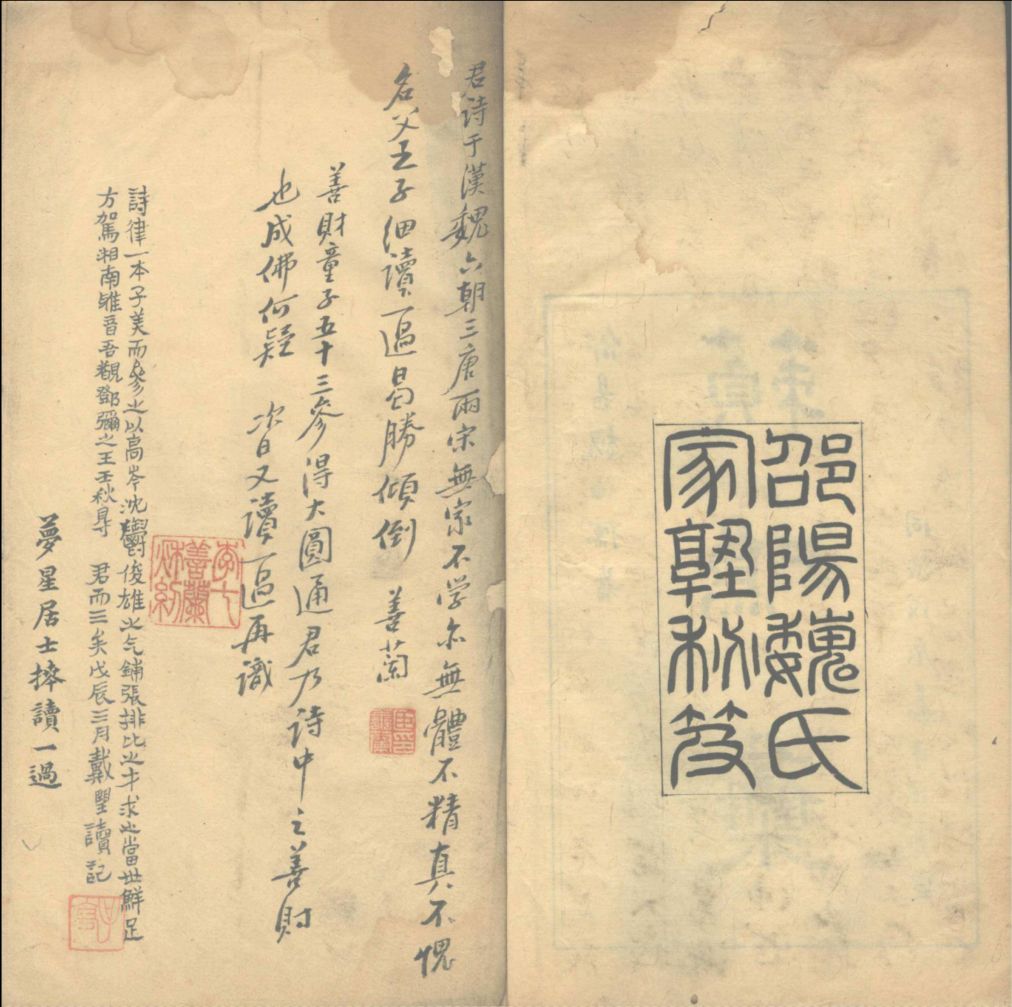 邵陽魏氏
家塾秘笈
君诗于漢魏六朝三唐兩宋無家不学亦無體不精真不愧
名父之子細讀一過曷勝傾倒 善蘭
善財童子五十三參得大圓通君乃诗中之善財
也成佛何疑 次日又讀一過再識
李七
善蘭
秋紉
詩律一本子美而參之以高岑沈鬱俊雄之气鋪張排比之才求之當世鮮足
方駕湘南雅音吾覯鄧彌之王壬秋㝷 君而三矣戊辰三月戴望讀記
夢星居士捧讀一過